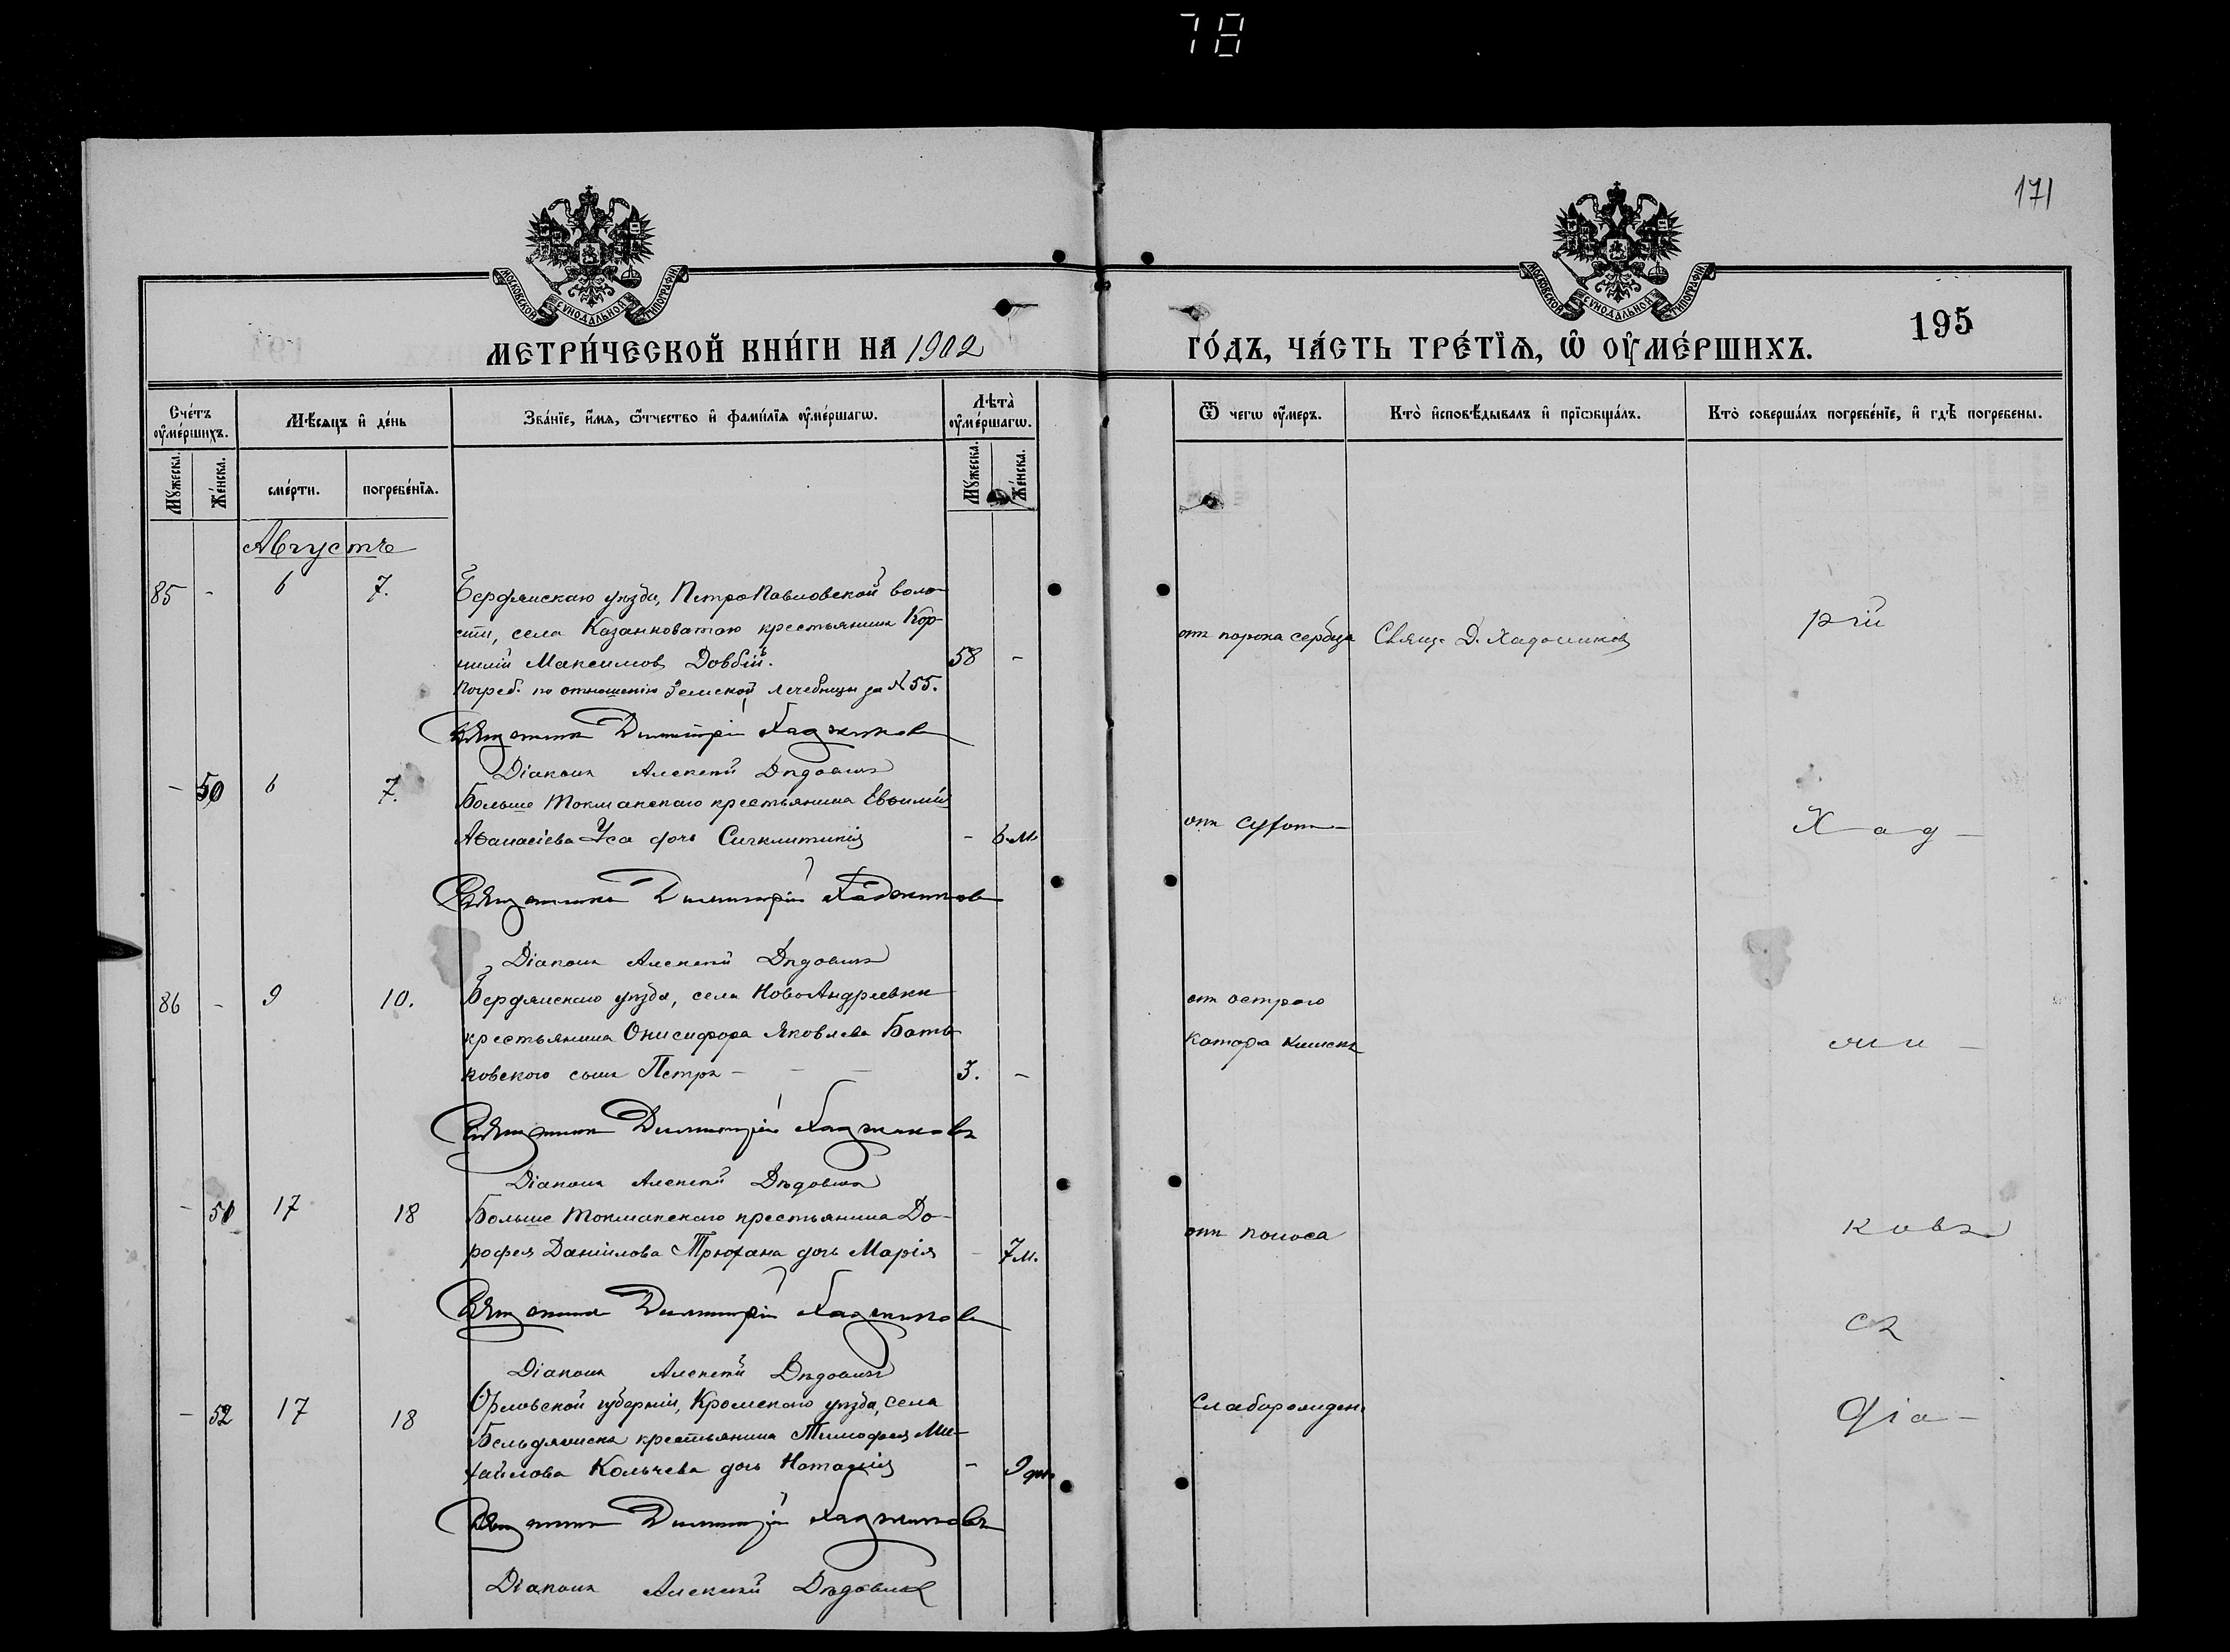 78
171
МОСКОВСКОЙ СѴНОДАЛЬНОЙ ТИПОГРАФІИ
МОСКОВСКОЙ СѴНОДАЛЬНОЙ ТИПОГРАФІИ
МЕТРИ́ЧЕСКОЙ КНИ́ГИ НА 1902
ГО́ДЪ, ЧА́СТЬ ТРЕ́ТЇѦ, Ѡ ОУ҆МЕ́РШИХЪ.
195
Сче́тъ оу҆ме́ршихъ.
Мꙋ́жеска.
Же́нска.
Мѣ́сяцъ и҆ де́нь
сме́рти.
погребе́нїѧ.
Зва́нїе, и҆́мѧ, ѻ҆́тчество и҆ фами́лїѧ оу҆ме́ршагѡ.
Лѣта̀ оу҆ме́ршагѡ.
Мꙋ́жеска.
Же́нска.
Ѿ чегѡ оу҆́меръ.
Кто̀ и҆сповѣ́дывалъ и҆ прїѡбща́лъ.
Кто̀ соверша́лъ погребе́нїе, и҆ гдѣ̀ погребены.
Августъ
85 - 6 7.
Бердянскаго уѣзда, ПетроПавловской воло-
сти, села Казанковатаго крестьянинъ Кор-
нилій Максимовъ Довбій. 58 -
Погреб. по отношенію Земской лечебницы за № 55.
отъ порока сердца
Свящ. Д. Хаджиновъ
рій
Священникъ Димитрій Хаджиновъ
Діаконъ Алексѣй
- 50 6 7.
Больше Токмакскаго крестьянина Евѳимія
Аѳанасіева Уса дочь Сигклитикія - 6 м.
отъ
Хад-
Священникъ Димитрій Хаджиновъ
Діаконъ Алексѣй
86 - 9 10.
Бердянскаго уѣзда, села НовоАндреевки
крестьянина Онисифора Яковлева Бать-
ковского сынъ Петръ - - - 3. -
отъ остраго
катара кишекъ
жи-
Священникъ Димитрій Хаджиновъ
Діаконъ Алексѣй
- 51 17 18
Больше Токмакскаго крестьянина До-
рофея Даніилова Трюхана дочь Марія - 7 м.
отъ поноса
новъ
Священникъ Димитрій Хаджиновъ
съ
Діаконъ Алексѣй
- 52 17 18
Орловской губерніи, Кромскаго уѣзда, села
крестьянина Тимофея Ми-
хайлова Кольчева дочь Наталія - 9 дн.
Слаборожден.
Діа-
Священникъ Димитрій Хаджиновъ
Діаконъ Алексѣй